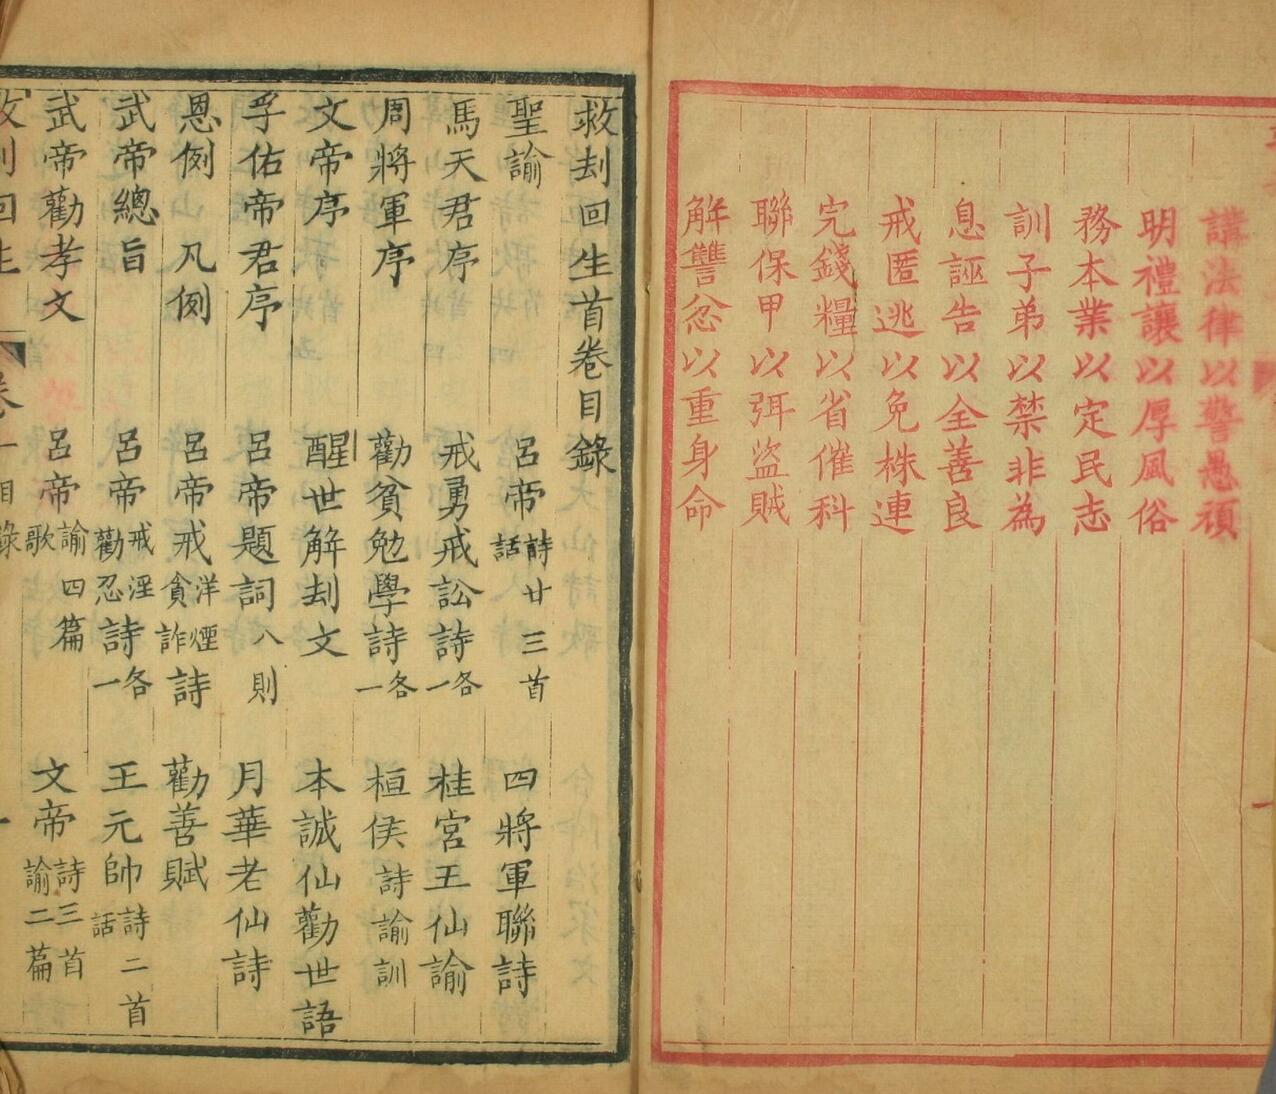 講法律以警愚頑
明禮讓以厚風俗
務本業以定民志
訓子弟以禁非為
息誣告以全善良
戒匿逃以免株連
完錢糧以省催科
聯保甲以弭盜賊
解讐忿以重身命
救刦回生首卷目錄
聖諭 呂帝詩話廿三首 四將軍聯詩
馬天君序 戒勇戒訟詩各一 桂宮王仙諭
周將軍序 勸貧勉學詩各一 桓侯詩諭訓
文帝序 醒世解刦文 本誠仙勸世語
孚佑帝君序 呂帝題詞八則 月華老仙詩
恩例 凡例 呂帝戒洋煙貪詐詩 勸善賦
武帝總旨 呂帝戒淫勸忍詩各一 王元帥詩話二首
武帝勸孝文 呂帝諭歌四篇 文帝詩三首諭二篇
救刦回生 卷首 目錄 一